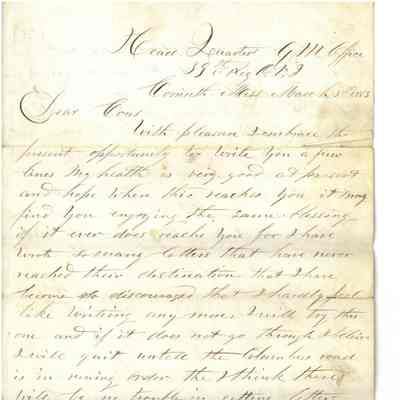 Head Quarters Q M Office
39th Reg O V I
Corinth Miss March 3rd 1863
Dear Cous
With pleasure I embrace the
present opportunity to write you a few
lines My health is very good at present
and hope when this reaches you it may
find you enjoying the same blessing
if it ever does reach you for I have
wrote so many letters that have never
reached their destination that I have
become so discouraged that I hardly feel
like writing any more I will try this
one and if it does not go through I believe
I will quit untill the Columbus road
is in runing order the I think there
will be no trouble in getting letters